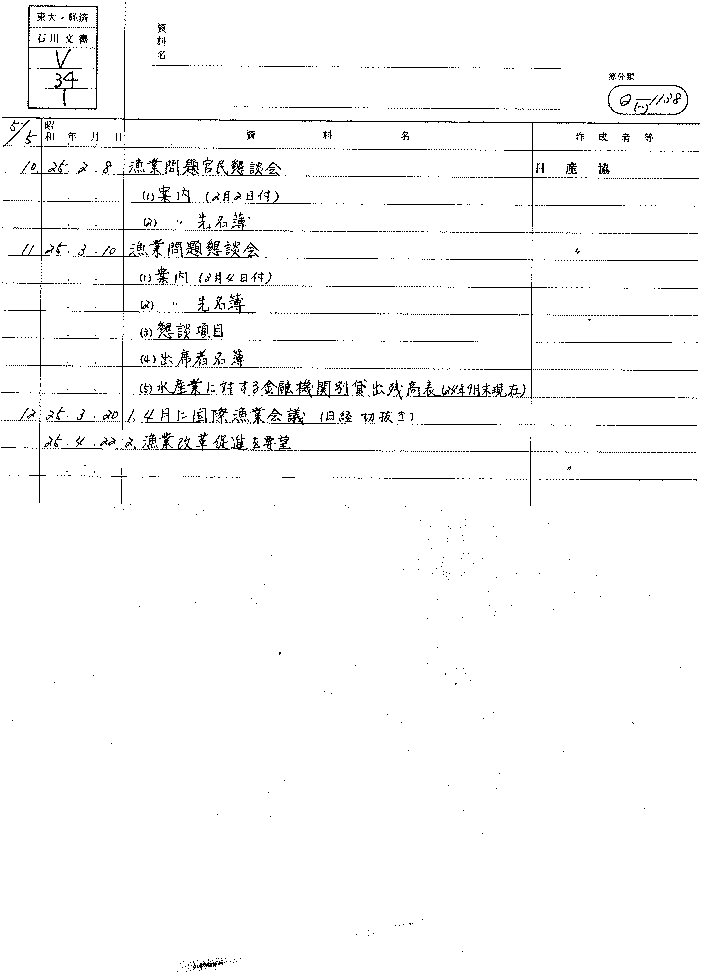 東大・経済
石川文書
V
34
1
資料名
旧分類
Q-(一)-1138
5/5 昭和 年 月 日 資料名 作成者等
10 25・2・8 漁業問題官民懇談会 日産協
(1) 案内 (2月2日付)
(2) 〃 先名簿
11 25・3・10 漁業問題懇談会 〃
(1) 案内 (3月4日付)
(2) 〃 先名簿
(3) 懇談項目
(4) 出席者名簿
(5) 水産業に対する金融機関別貸出残高表(24年9月末現在)
12 25・3・20 1. 4月に国際漁業会議 (日経 切抜き)
25・4・22 2. 漁業改革促進を要望
〃